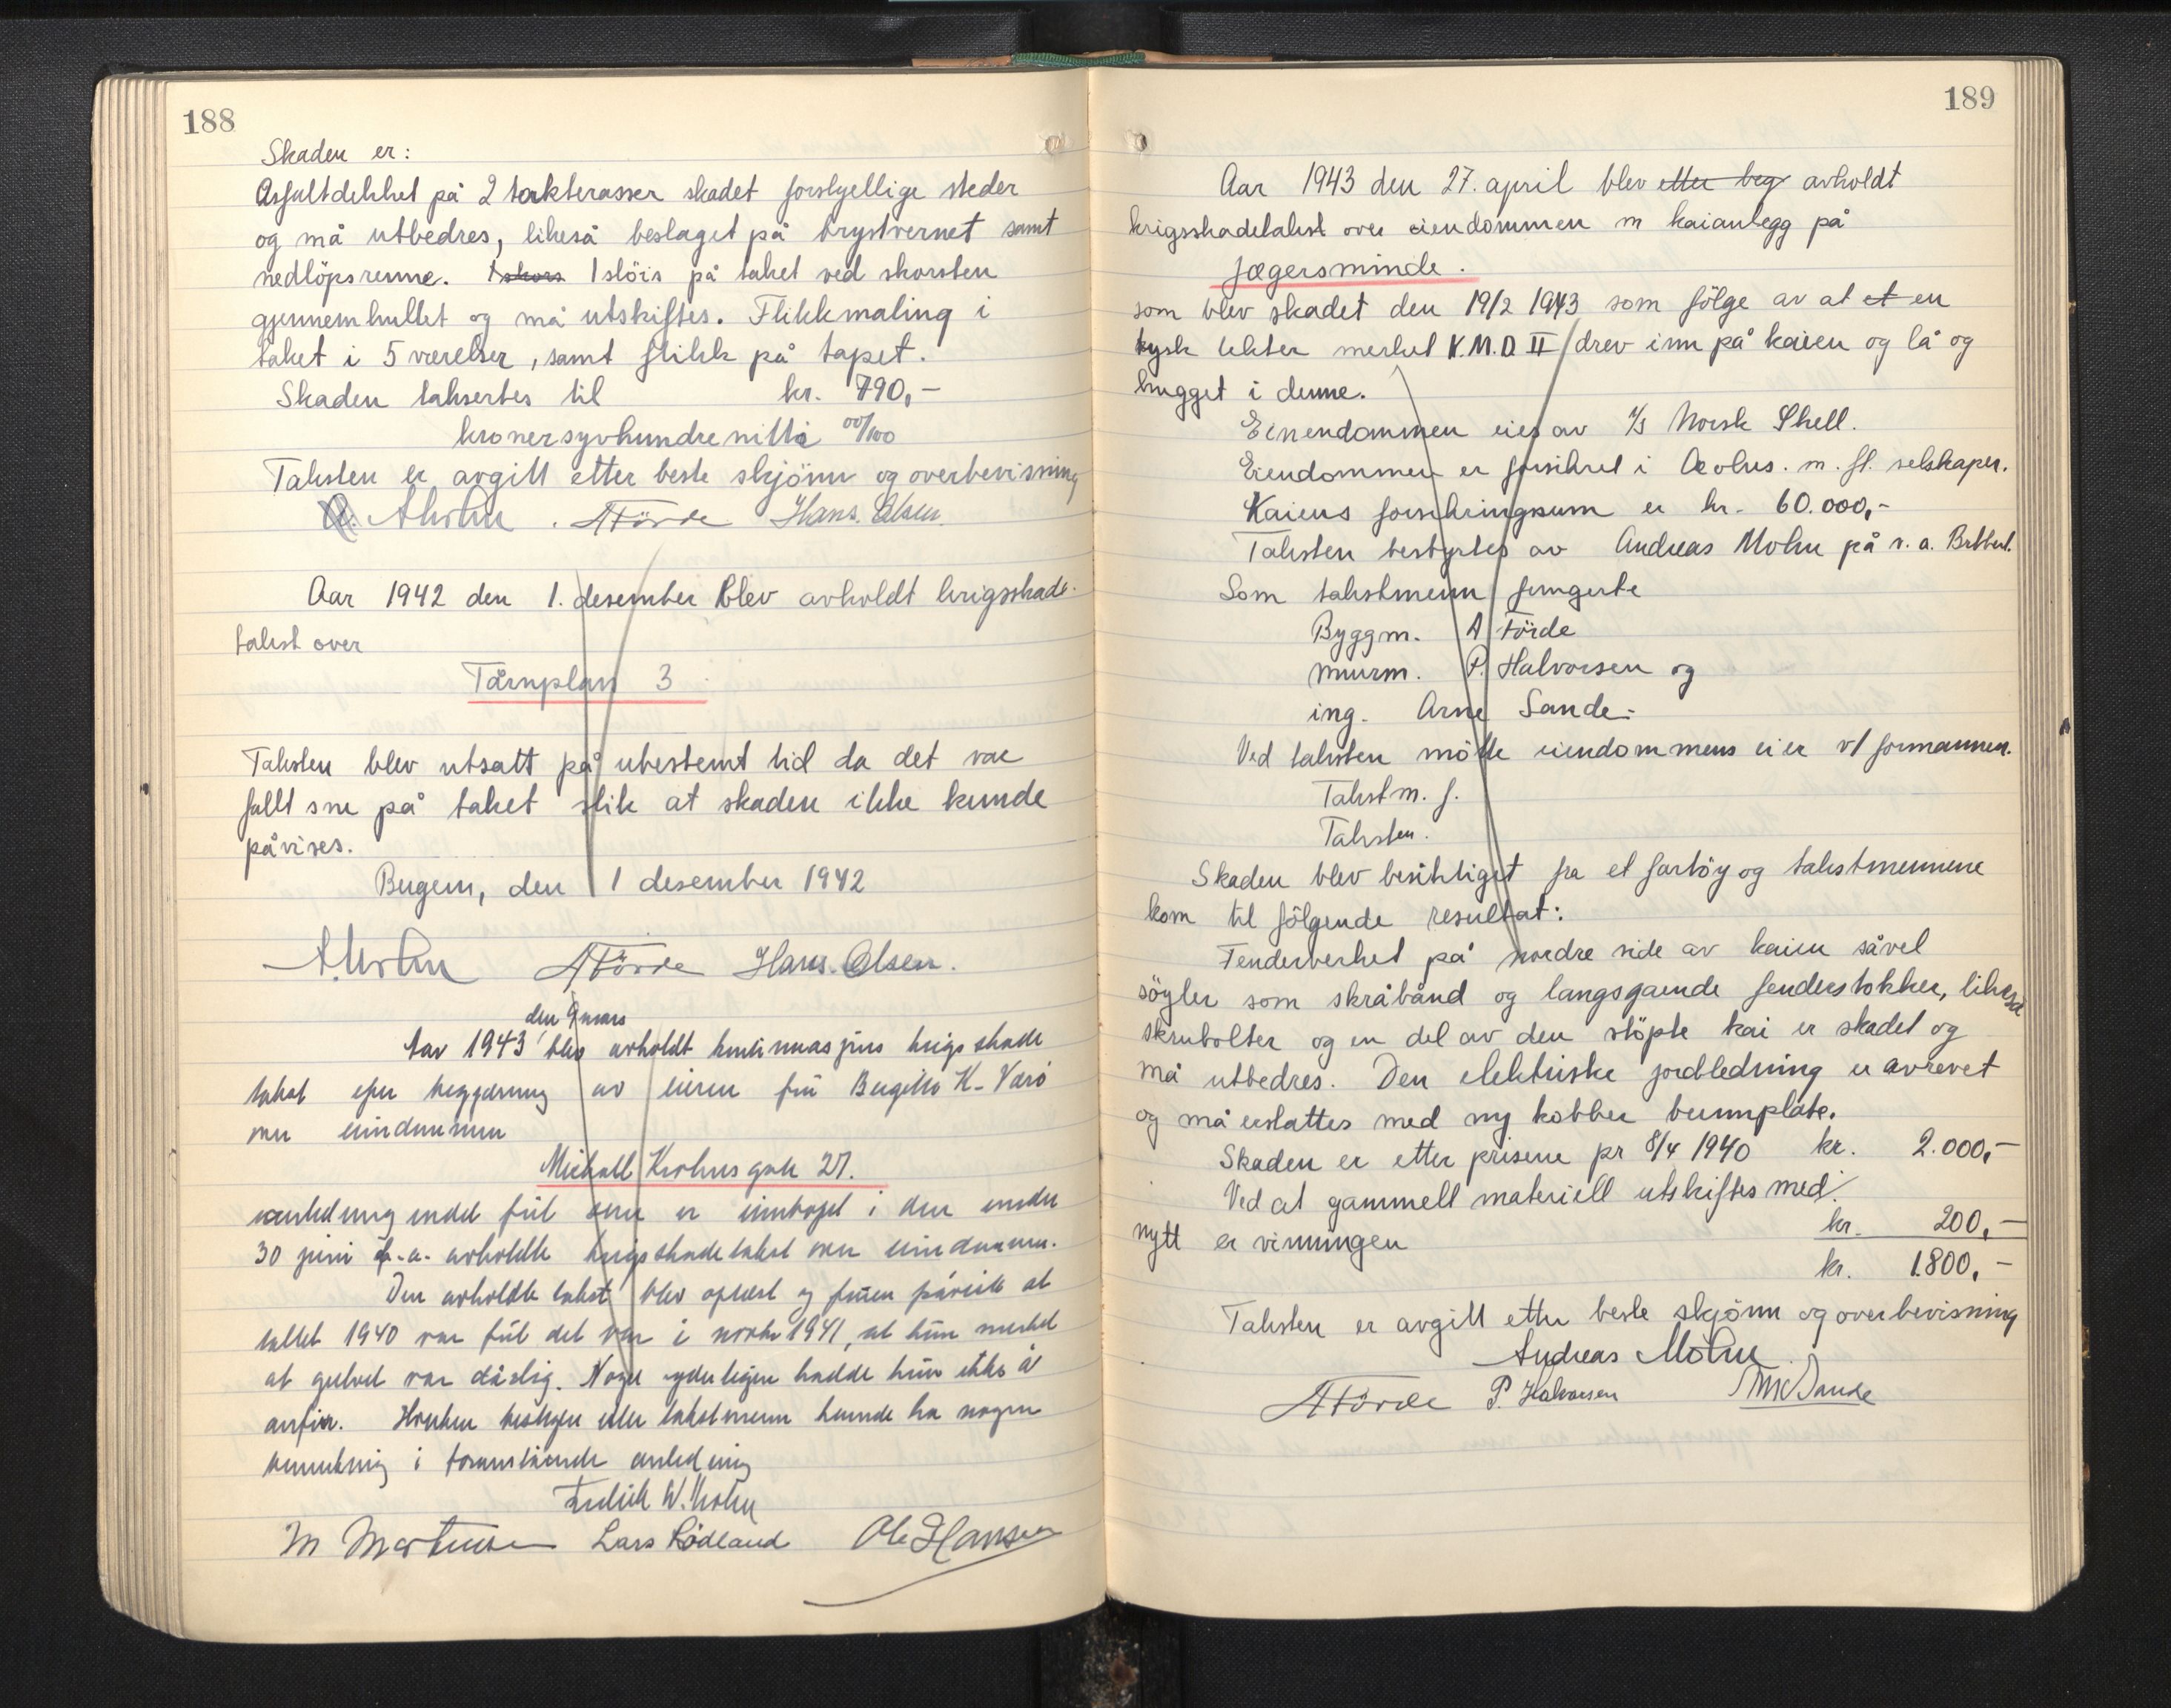 188
Skaden er:
Asfaltdekket på 2 takterasser skadet forskjellige steder
og må utbedres, likeså beslaget på brystvernet samt
nedlöpsrenne. 1 skors 1 stöis på taket ved skorsten
gjennemhullet og må utskiftes. Flikkmaling i
taket i 5 værelser, samt flikk på tapet.
Skaden taksertes til kr. 790,-
kroner syvhundrenitti 00/100
Taksten er avgitt etter beste skjönn og overbevisning
A. Mohn. A Förde Hans. Olsen.
Aar 1942 den 1. desember blev avholdt krigsskade-
takst over
Tårnplan 3
Taksten blev utsatt på ubestemt tid da det var
fallt sne på taket slik at skaden ikke kunde
påvises.
Bergen, den 1 desember 1942
A. Mohn A Förde Hans. Olsen.
den 9 mars
Aar 1943 blev avholdt krigsskade
takst efter begjæring av eieren frú Bergitte K-
over eiendommen
Michall Krohns gate 27.
anledning endel feil som er innkommet i den under
30 juni f.a. avholdte krigsskadetakst over eiendommen.
Den avholdte takst blev oplest og fruen påviste at
tallet 1940 var feil det var i 1941, at hun merket
at gulvet var dårlig. Noget yderligere hadde hun ikke å
anföre. Hverken bestyrer eller takstmenn kunde ha nogen
bemerkning i foranstående anledning
Fredrik W. Mohn
M Martinsen Lars Rödland Ole Hansen
189
Aar 1943 den 27. april blev etter beg avholdt
krigsskadetakst over eiendommen m kaianlegg på
Jægersminde.
som blev skadet den 19/2 1943 som fölge av at et en
tysk lekter merket K.M.D II drev inn på kaien og lå og
hugget i denne.
Einendommen eies av A/S Norsk Shell.
Eiendommen er forsikret i Aeolus. m. fl. selskaper.
Kaiens forsikringssum er kr. 60.000,-
Taksten bestyrtes av Andreas Mohn på v. a. Brtbest.
Som takstmenn fungerte
Byggm. A Förde
murm. P. Halvorsen og
ing. Arne Sande.
Ved taksten mötte eiendommens eier v/ formannen.
Takstm. f.
Taksten.
Skaden blev besiktiget fra et fartöy og takstmennene
kom til fölgende resultat:
Fenderverket på nordre side av kaien såvel
söyler som skråbånd og langsgaende fenderstokker, likeså
skrubolter og en del av den stöpte kai er skadet og
må utbedres. Den elektriske jordledning er avrevet
og må erstattes med ny kobber bunnplate.
Skaden er etter prisene pr 8/4 1940 kr. 2.000,-
Ved at gammelt materiell utskiftes med
nytt er vinningen kr. 200,-
kr. 1.800,-
Taksten er avgitt etter beste skjönn og overbevisning
Andreas Mohn
A Förde P. Halvorsen Sande